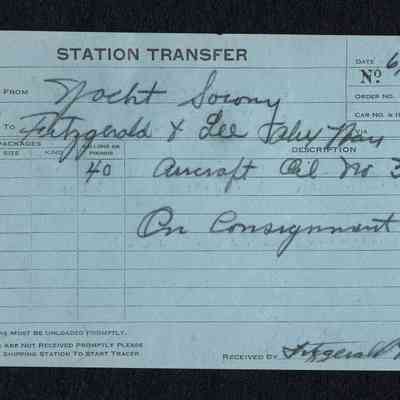 STATION TRANSFER
DATE 6/
Nº
FROM Yacht Socony
ORDER NO.
TO Fitzgerald & Lee
CAR NO. & I
VIA
PACKAGES GALLONS OR POUNDS DESCRIPTION
SIZE KIND
40 Aircraft Oil No 3
On Consignment
MUST BE UNLOADED PROMPTLY.
ARE NOT RECEIVED PROMPTLY PLEASE
SHIPPING STATION TO START TRACER
RECEIVED BY Fitzgerald